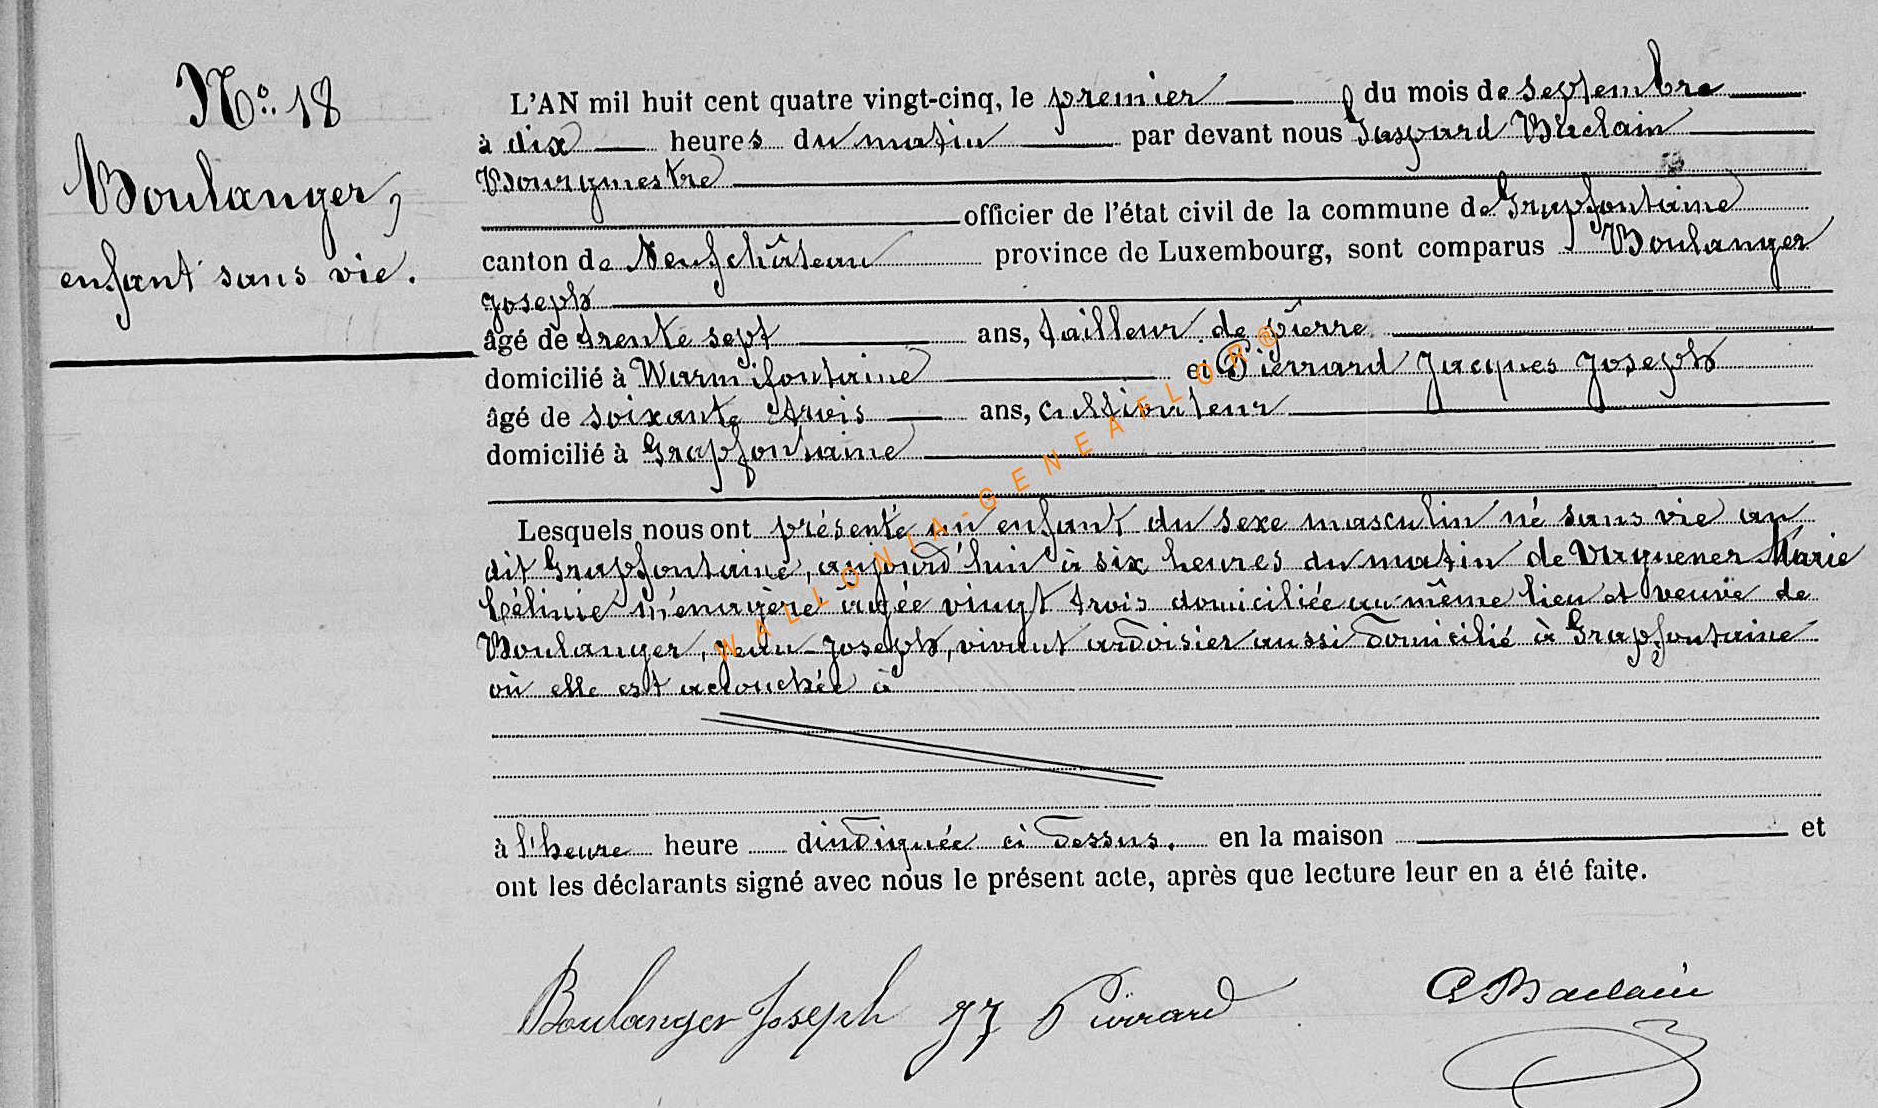 N° 18
Boulanger,
enfant sans vie.
L'AN mil huit cent quatre vingt-cinq, le premier du mois de septembre
à dix heures du matin par devant nous Gaspard Baclain
Bourgmestre
officier de l'état civil de la commune de Grapfontaine
canton de Neufchâteau province de Luxembourg, sont comparus Boulanger
Joseph
âgé de trente sept ans, tailleur de pierre
domicilié à Warmifontaine et Pierrard Jacques Joseph
âgé de soixante trois ans, cultivateur
domicilié à Grapfontaine
Lesquels nous ont présenté un enfant du sexe masculin né sans vie au
dit Grapfontaine, aujourd'hui à six heures du matin de Marie
Célinie ménagère âgée vingt trois domiciliée au même lieu et veuve de
Boulanger, Jean-Joseph, vivant ardoisier aussi domicilié à Grapfontaine
où elle est accouchée à
à l'heure heure d'indiquée ci dessus. en la maison et
ont les déclarants signé avec nous le présent acte, après que lecture leur en a été faite.
Boulanger Joseph JJ Pierrard G Baclain
WALLONIA-GENEAFLOR®